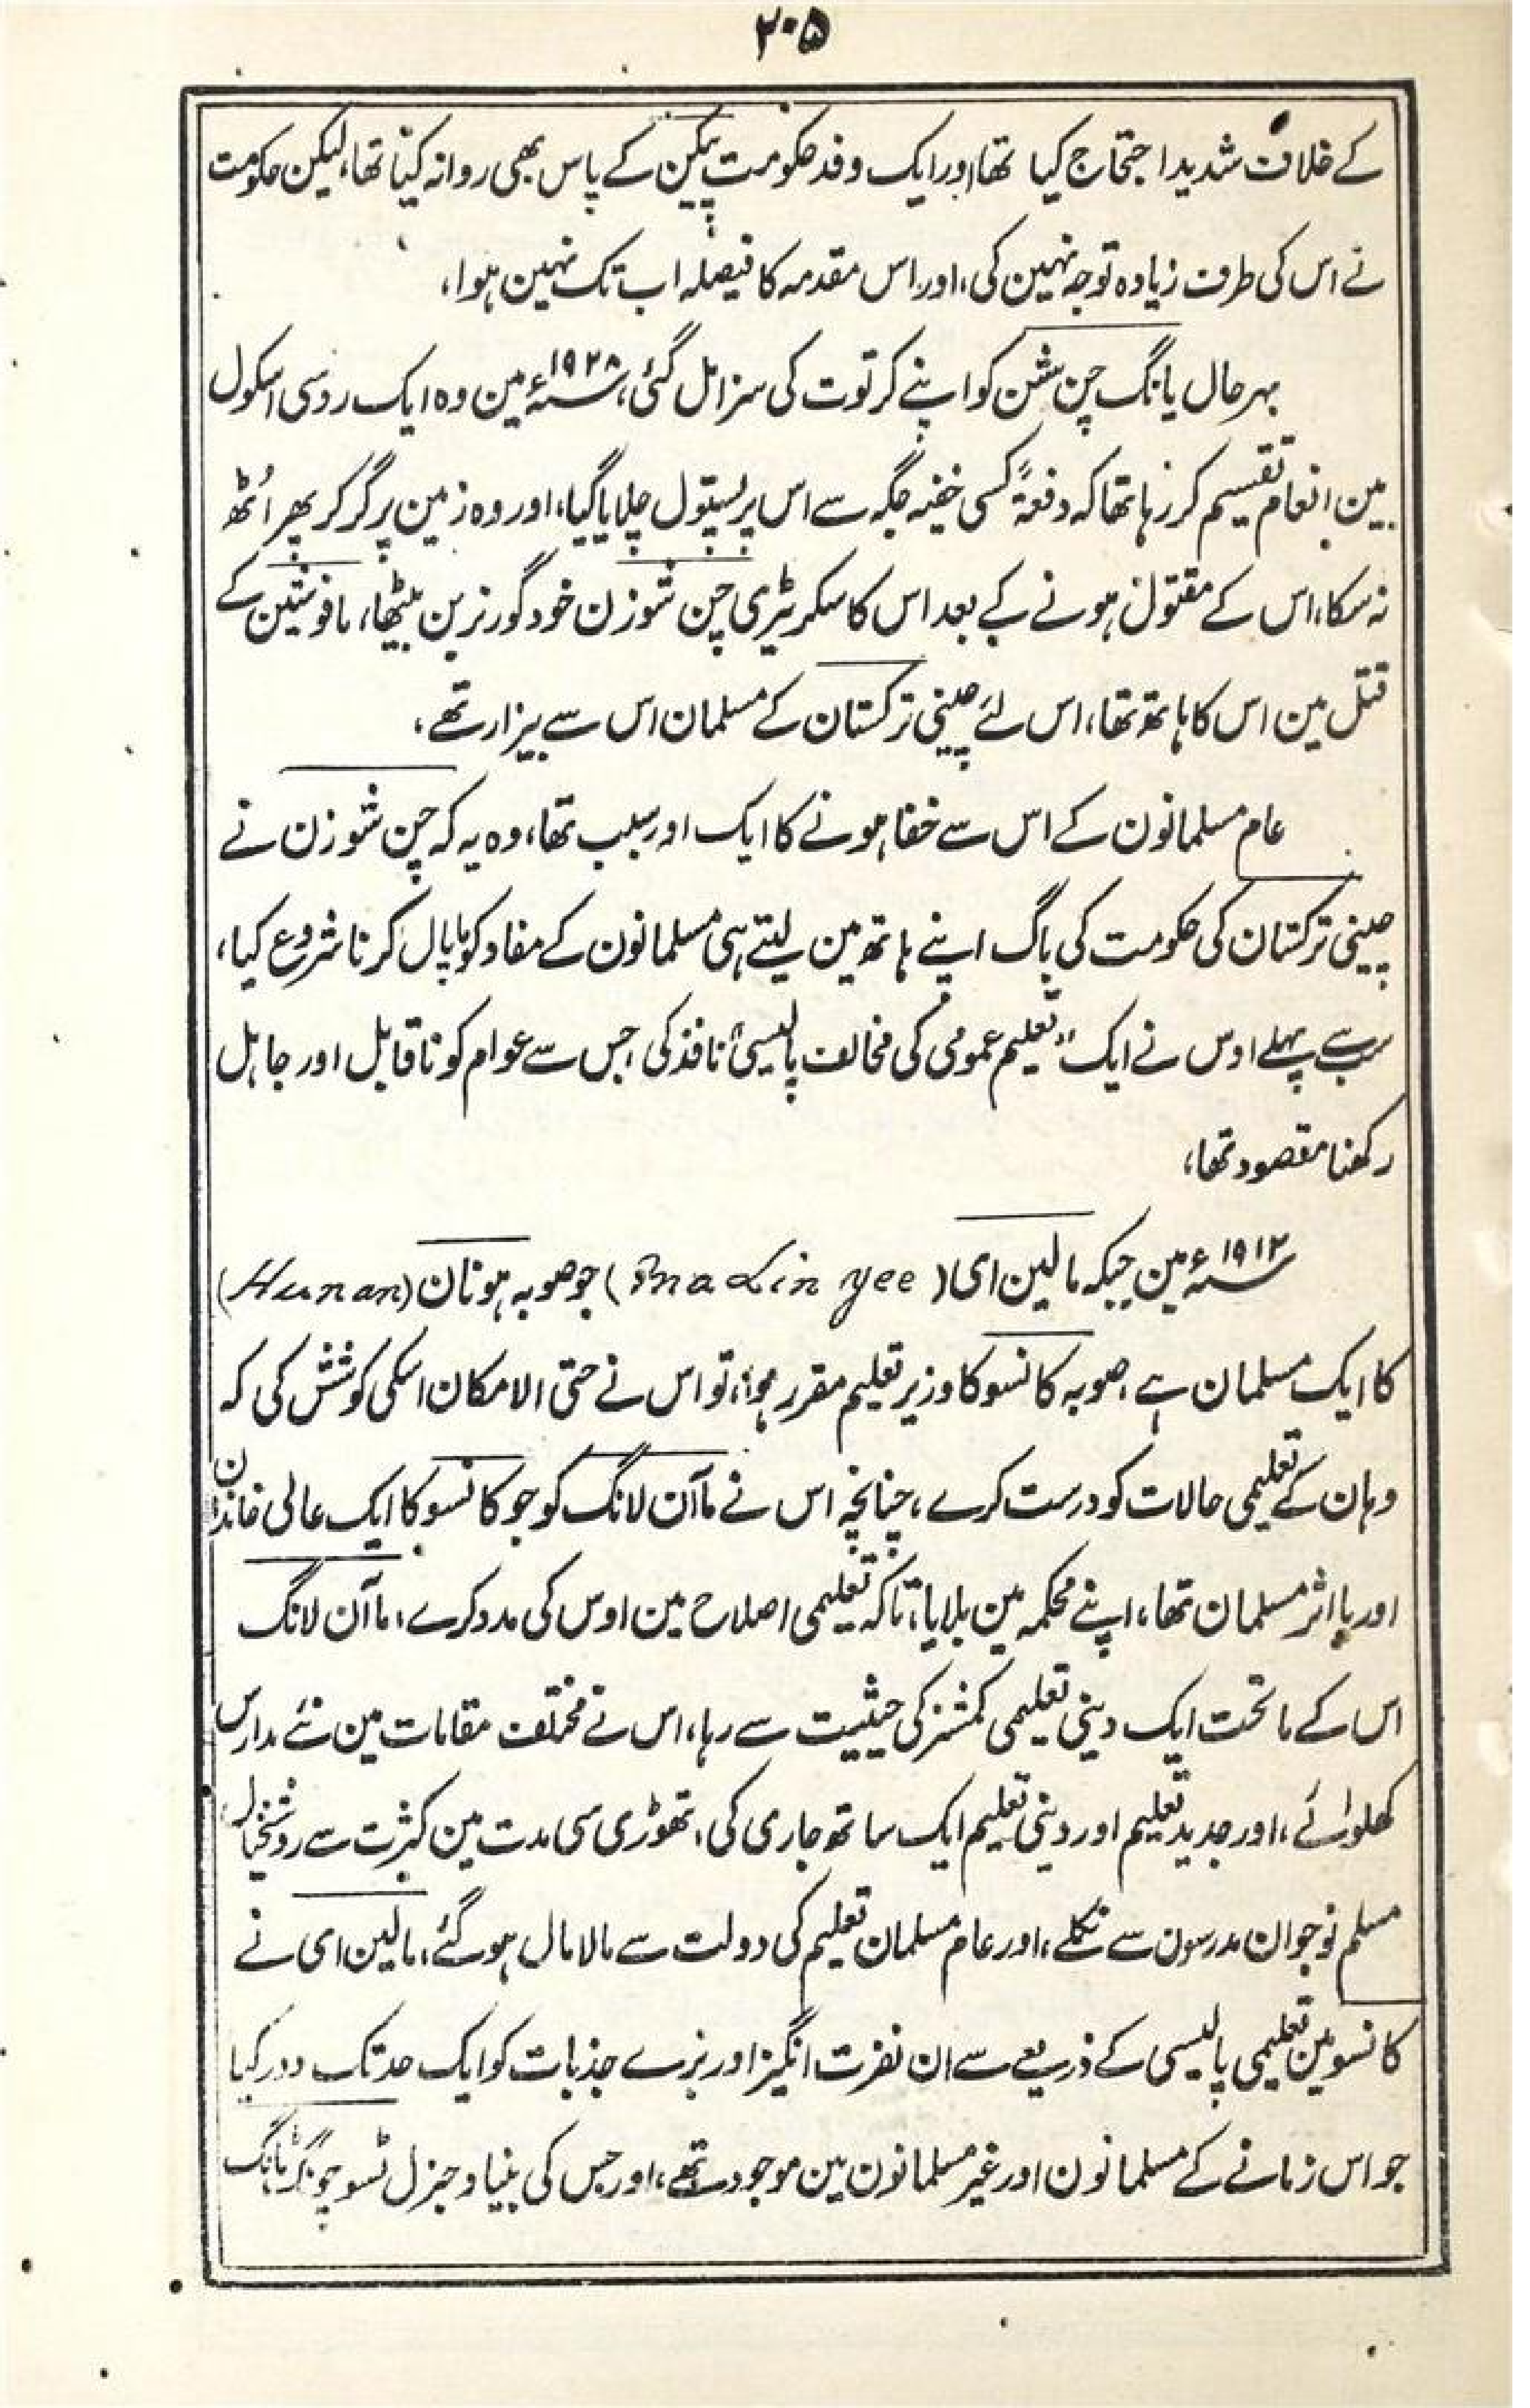 ۲۰۵
کے خلاف شدید احتجاج کیا تھا، اور ایک وفد حکومت پیکین کے پاس بھی روانہ کیا تھا، لیکن حکومت
نے اس کی طرف زیادہ توجہ نہین کی، اور اس مقدمہ کا فیصلہ اب تک نہین ہوا،
بہر حال یانگ چن شن کو اپنے کرتوت کی سزا مل گئی، ۱۹۲۸ء مین وہ ایک روسی اسکول
مین انعام تقسیم کر رہا تھا کہ دفعۃً کسی خفیہ جگہ سے اس پر پستول چلایا گیا، اور وہ زمین پر گر کر پھر اُٹھ
نہ سکا، اس کے مقتول ہونے کے بعد اس کا سکریٹری چن شوزن خود گورنر بن بیٹھا، مافوشین کے
قتل مین اس کا ہاتھ تھا، اس لئے چینی ترکستان کے مسلمان اس سے بیزار تھے،
عام مسلمانون کے اس سے خفا ہونے کا ایک اور سبب تھا، وہ یہ کہ چن شوزن نے
چینی ترکستان کی حکومت کی باگ اپنے ہاتھ مین لیتے ہی مسلمانون کے مفاد کو پامال کرنا شروع کیا،
سب سے پہلے اوس نے ایک "تعلیم عمومی کی مخالف پالیسی" نافذ کی، جس سے عوام کو ناقابل اور جاہل
رکھنا مقصود تھا،
۱۹۱۲ء مین جبکہ مالین ای (Ma Lin yee) جو صوبہ ہونان (Hunan)
کا ایک مسلمان ہے، صوبہ کانسو کا وزیر تعلیم مقرر ہوا، تو اس نے حتی الامکان اسکی کوشش کی کہ
وہان کے تعلیمی حالات کو درست کرے، چنانچہ اس نے ماآن لانگ کو جو کانسو کا ایک عالی خاندان
اور با اثر مسلمان تھا، اپنے محکمہ مین بلایا، تاکہ تعلیمی اصلاح مین اوس کی مدد کرے، ماآن لانگ
اس کے ماتحت ایک دینی تعلیمی کمشنر کی حیثیت سے رہا، اس نے مختلف مقامات مین نئے مدارس
کھلوائے، اور جدید تعلیم اور دینی تعلیم ایک ساتھ جاری کی، تھوڑی سی مدت مین کثرت سے روشنخیال
مسلم نوجوان مدرسون سے نکلے، اور عام مسلمان تعلیم کی دولت سے مالامال ہو گئے، مالین ای نے
کانسو مین تعلیمی پالیسی کے ذریعے سے ان نفرت انگیز اور برے جذبات کو ایک حد تک دور کیا
جو اس زمانے کے مسلمانون اور غیر مسلمانون مین موجود تھے، اور جس کی بنیاد جنرل ٹسو